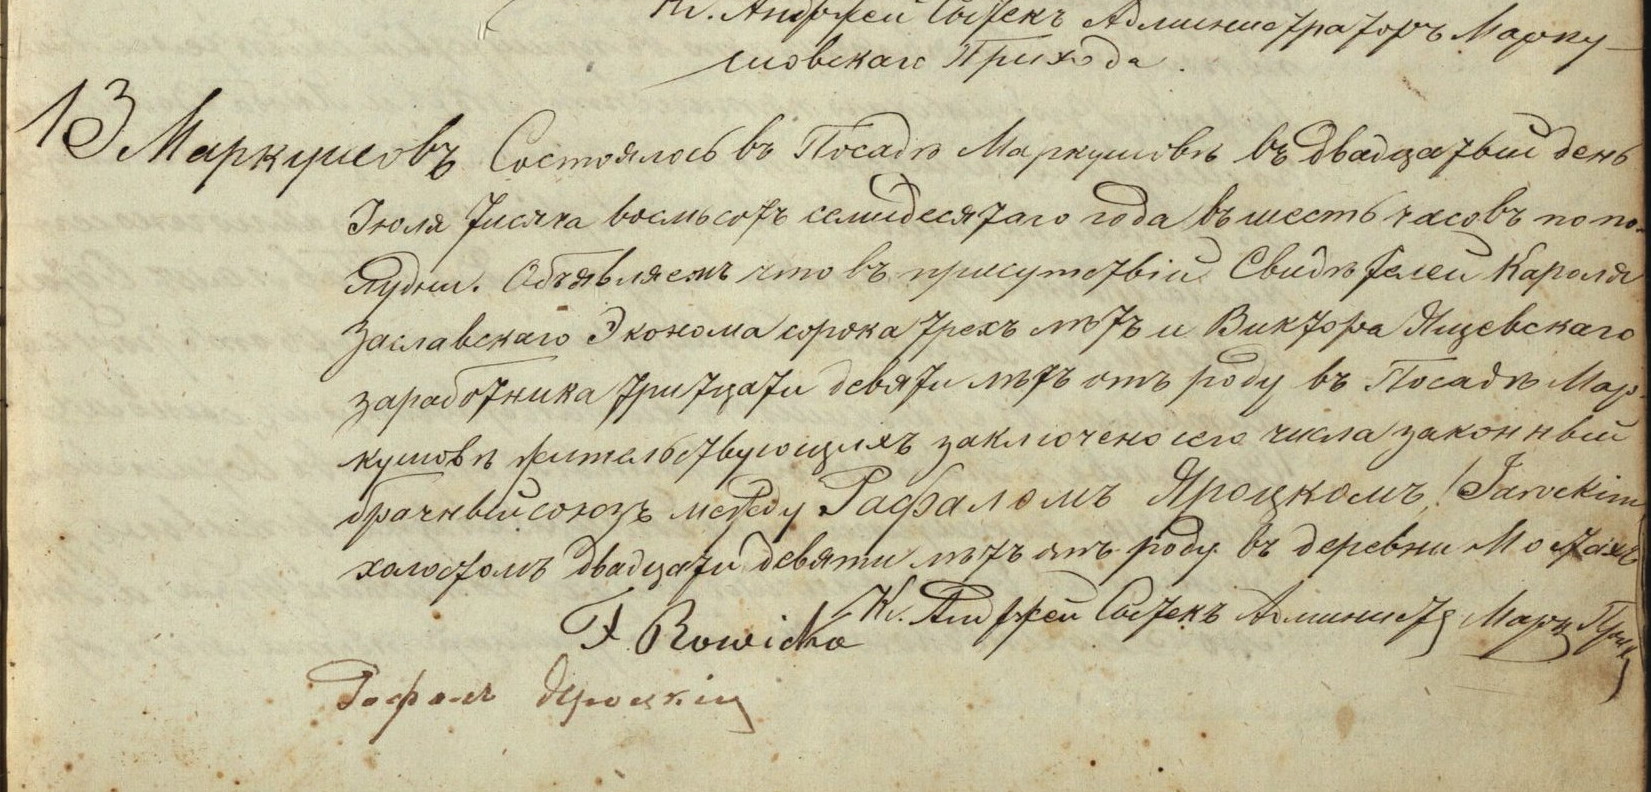 Кс. Андржей Сырекъ Администраторъ Марку-
шовскаго Прихода.
13 Маркушовъ Состоялось въ Посадѣ Маркушовѣ въ двадцатый день
Іюля тысяча восмьсотъ семидесятаго года въ шесть часовъ по по-
лудни. Объявляемъ что въ присутствіи Свидѣтелей Кароля
Заславскаго Эконома сорока трехъ лѣтъ и Виктора Яцевскаго
заработника тритцати девяти лѣтъ отъ роду въ Посадѣ Мар-
кушовѣ жительствующихъ заключено сего числа законный
брачный союзъ между Рафаломъ Яроцкомъ /Jarockim
холостомъ двадцати девяти лѣтъ отъ роду въ деревни Мостахъ
Кс. Андржей Администр Марк Прих
F Rowicka
Рафалъ Яроцкій